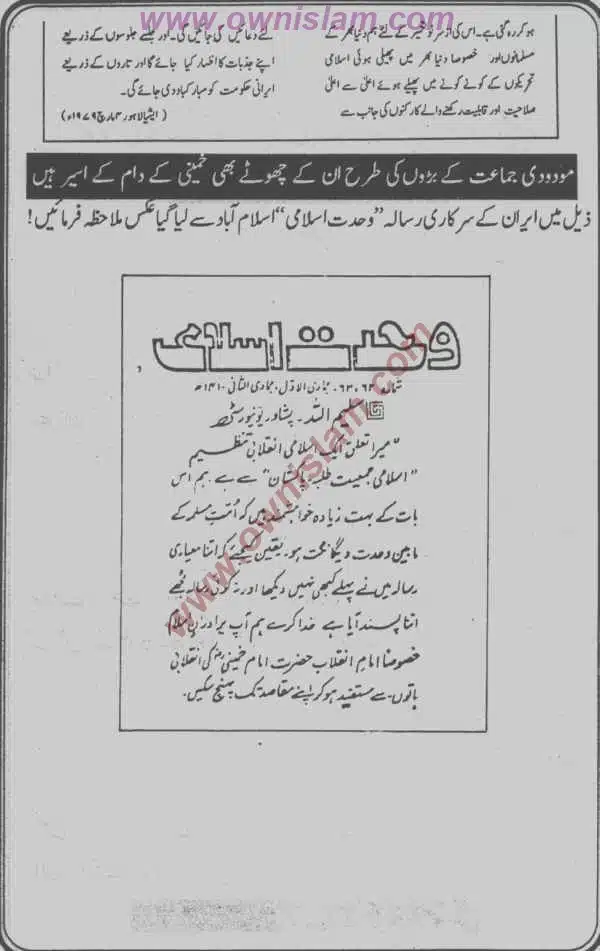 www.ownislam.com
ہو کر رہ گئی ہے۔ اس کی از سر نو تعمیر کے لئے ہم دنیا بھر کے
مسلمانوں اور خصوصا دنیا بھر میں پھیلی ہوئی اسلامی
تحریکوں کے کونے کونے میں پھیلے ہوئے اعلیٰ سے اعلیٰ
صلاحیت اور قابلیت رکھنے والے کارکنوں کی جانب سے
لئے دعائیں کی جائیں گی۔ اور جلسے جلوسوں کے ذریعے
اپنے جذبات کا اظہار کیا جائے گا اور تاروں کے ذریعے
ایرانی حکومت کو مبارکباد دی جائے گی۔
(ایشیا لاہور ۴ مارچ ۱۹۷۹ء)
مودودی جماعت کے بڑوں کی طرح ان کے چھوٹے بھی خمینی کے دام کے اسیر ہیں
ذیل میں ایران کے سرکاری رسالہ "وحدت اسلامی" اسلام آباد سے لیا گیا عکس ملاحظہ فرمائیں!
وحدت اسلامی
شمارہ ۶۳،۶۲۔ جمادی الاول، جمادی الثانی ۱۴۱۰ھ
سلیم اللہ۔ پشاور یونیورسٹی
"میرا تعلق ایک اسلامی انقلابی تنظیم
"اسلامی جمعیت طلبہ پاکستان" سے ہے ہم اس
بات کے بہت زیادہ خواہشمند ہیں کہ اُمت مسلمہ کے
مابین وحدت و یگانگت ہو۔ یقین کیجئے کہ اتنا معیاری
رسالہ میں نے پہلے کبھی نہیں دیکھا اور نہ کوئی رسالہ مجھے
اتنا پسند آیا ہے خدا کرے ہم آپ برادرنِ اسلام
خصوصاً امامِ انقلاب حضرت امام خمینیؒ کی انقلابی
باتوں سے مستفید ہو کر اپنے مقاصد تک پہنچ سکیں۔
www.ownislam.com